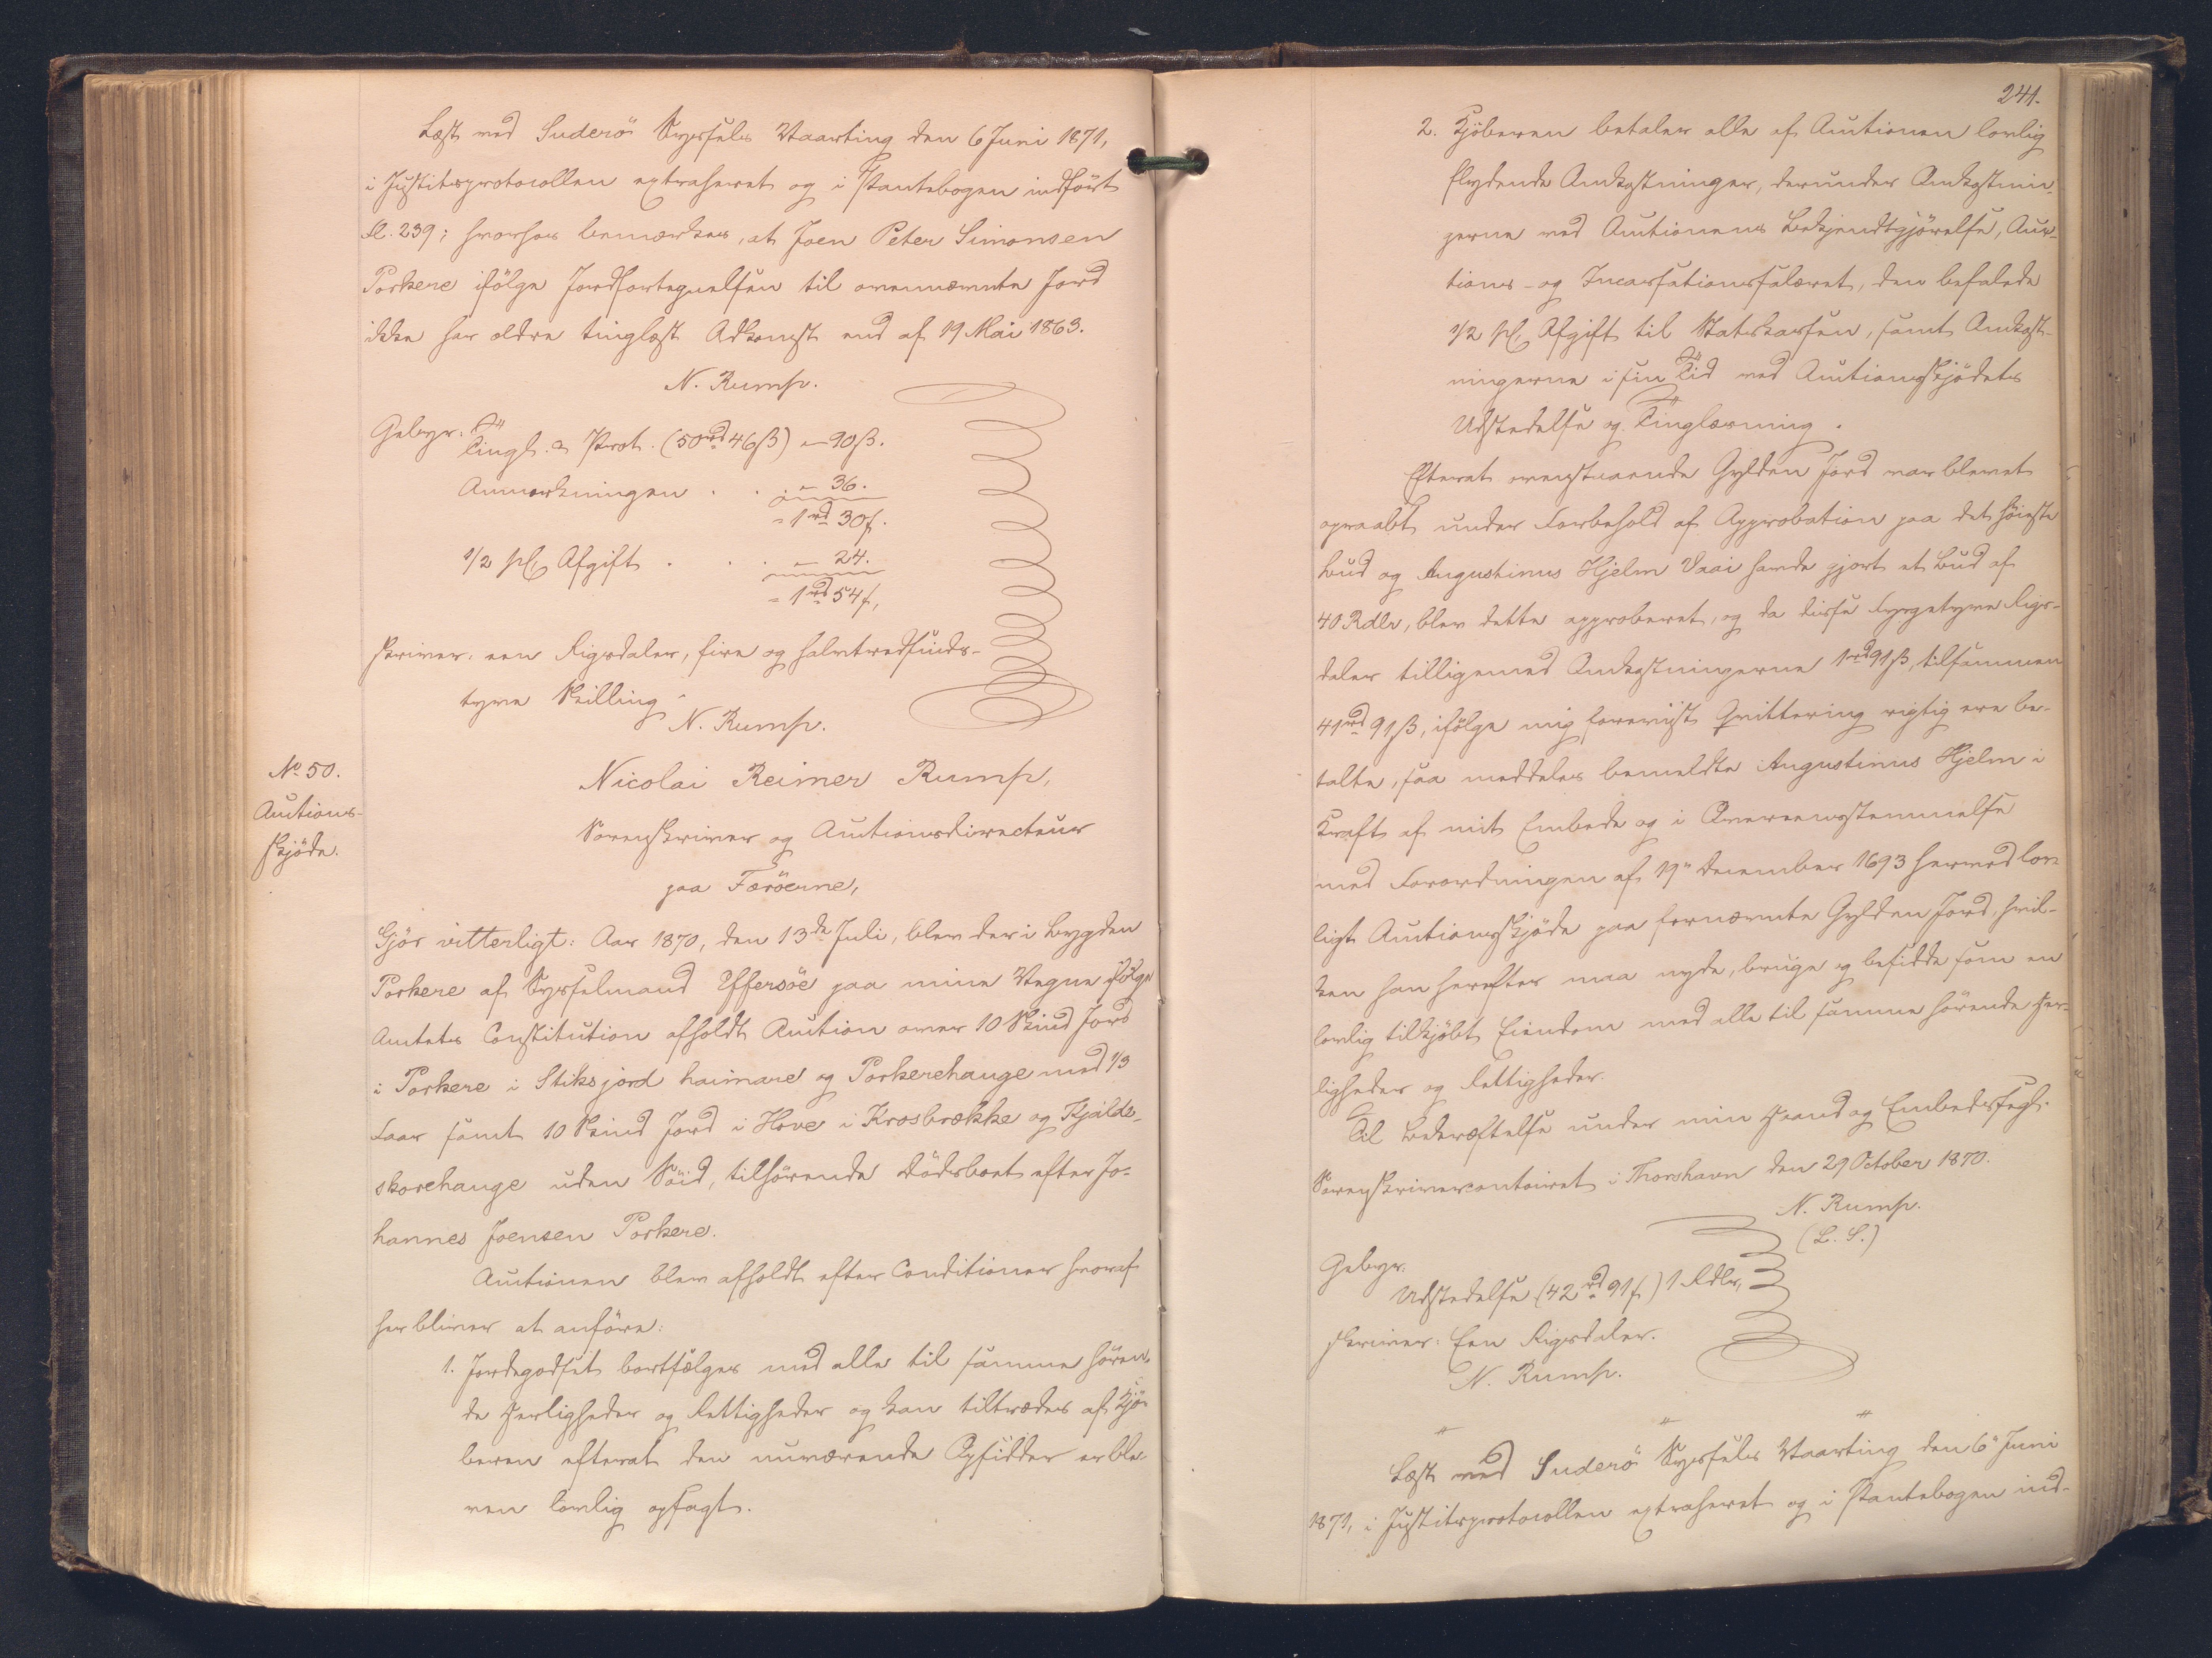 Læst ved Suderö Sysfels Vaarting den 6 Juni 1871,
i Justitsprotocollen extraheret og i Pantebogen indfört
Fl. 239; hvorhos bemærkes, at Joen Peter Simonsen
Porkere ifölge Jordfortegnelsen til ovennævnte Jord
ikke har ældre tinglæst Adkomst end af 19 Mai 1863.
N. Rump.
Gebyr: Tingl. & Prot. (50rd 46ß) – 90ß.
Anmærkningen . . – 36.
= 1rd 30ß.
1/2 pCt Afgift . . . – 24.
= 1rd 54ß,
skriver: een Rigsdaler, fire og halvtredsinds-
tyve Skilling
N. Rump.
No 50.
Auctions-
skjöde.
Nicolai Reimer Rump,
Sorenskriver og Auctionsdirecteur
paa Færöerne,
Gjör vitterligt: Aar 1870, den 13de Juli, blev der i Bygden
Porkere af Sysselmand Effersöe paa mine Vegne ifölge
Amtets Constitution afholdt Auction over 10 Skind Jord
i Porkere i Stiksjord haimare og Porkerehauge med 1/3
Faar samt 10 Skind Jord i Hove i Krosbrække og Kjalds-
skorehauge uden Söid, tilhörende Dödsboet efter Jo-
hannes Joensen Porkere.
Auctionen blev afholdt efter Conditioner hvoraf
her bliver at anföre:
1. Jordegodset bortsælges med alle til samme hören-
de Herligheder og Rettigheder og kan tiltrædes af Kjö-
beren efterat den nuværende Opsidder er ble-
ven lovlig opsagt.
241.
2. Kjöberen betaler alle af Auctionen lovlig
flydende Omkostninger, derunder Omkostnin-
gerne ved Auctionens Bekjendtgjörelse, Auc-
tions- og Incassationssalæret, den befalede
1/2 pCt Afgift til Statskassen, samt Omkost-
ningerne i sin Tid ved Auctionsskjödets
Udstedelse og Tinglæsning.
Efterat ovenstaaende Gylden Jord var blevet
opraabt under Forbehold af Approbation paa det höieste
Bud og Augustinus Hjelm Vaai havde gjort et Bud af
40 Rdlr, blev dette approberet, og da disse Fyrgetyve Rigs-
daler tilligemed Omkostningerne 1rd 91ß, tilsammen
41rd 91ß, ifölge mig foreviist Qvittering rigtig ere be-
talte, saa meddeles bemeldte Augustinus Hjelm i
Kraft af mit Embede og i Overeensstemmelse
med Forordningen af 19de December 1693 hermed lov-
ligt Auctionsskjöde paa fornævnte Gylden Jord, hvil-
ken han herefter maa nyde, bruge og besidde som en
lovlig tilkjöbt Eiendom med alle til samme hörende Her-
ligheder og Rettigheder.
Til Bekræftelse under min Haand og Embedssegl.
Sorenskrivercontoiret i Thorshavn den 29 October 1870.
N. Rump.
(L. S.)
Gebyr:
Udstedelse (42rd 91ß) 1 Rdlr,
skriver: Een Rigsdaler.
N. Rump.
Læst ved Suderö Sysfels Vaarting den 6 Juni
1871, i Justitsprotocollen extraheret og i Pantebogen ind-